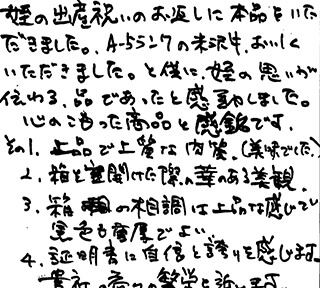 姪の出産祝いのお返しに本品をいた
だきました。A-5ランクの米沢牛、おいしく
いただきました。と供に、姪の思いが
伝わる、品であったと感動しました。
心のこもった商品と感銘です。
その1. 上品で上質な肉質。(美味でした)
2. 箱を開けた際の華のある美観。
3. 箱の相調は上品な感じで
黒色も重厚でよい。
4. 証明書に自信と誇りを感じます。
貴社の益々の繁栄を祈ります。